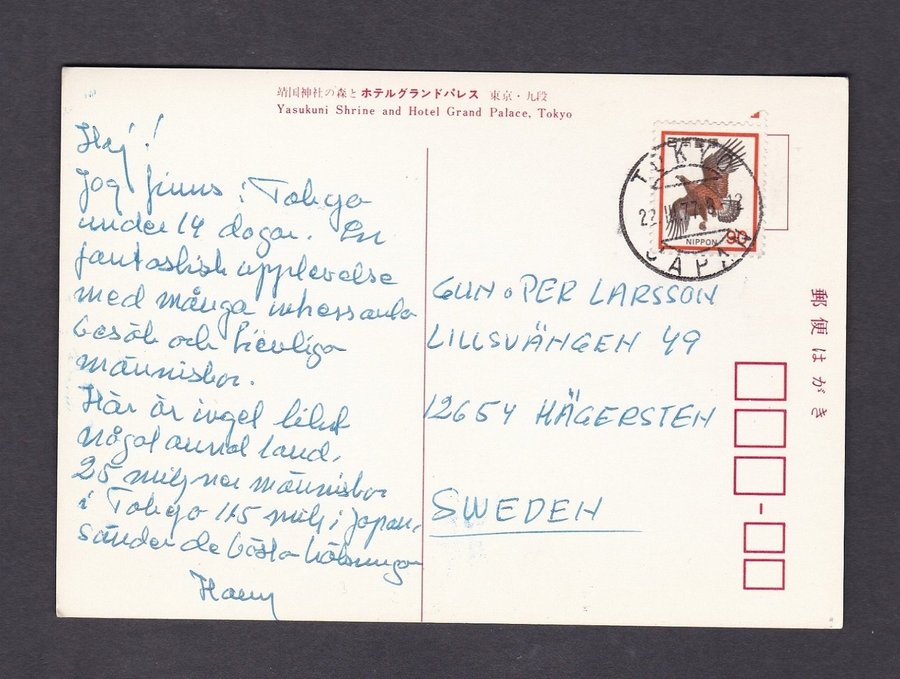 靖国神社の森とホテルグランドパレス 東京・九段
Yasukuni Shrine and Hotel Grand Palace, Tokyo
Hej!
Jag finns i Tokyo
under 14 dagar. En
fantastisk upplevelse
med många intressanta
besök och trevliga
människor.
Här är inget likt
något annat land.
25 miljoner människor
i Tokyo 115 milj i Japan.
Sänder de bästa hälsningar
TOKYO
22. 77. 9-12
JAPAN
NIPPON 90
GUN o PER LARSSON
LILLSVÄNGEN 49
12654 HÄGERSTEN
SWEDEN
郵便はがき